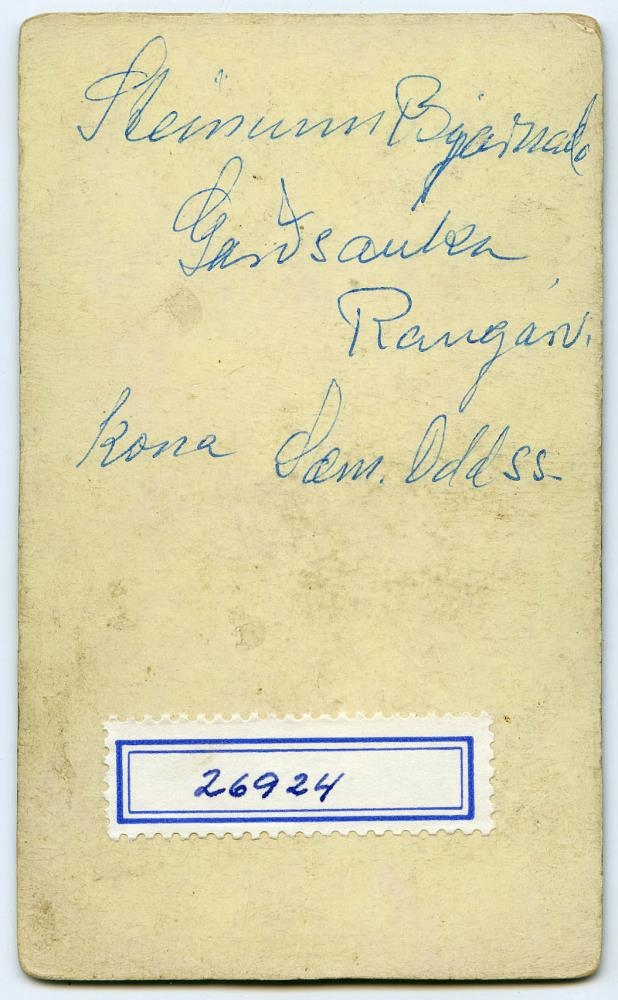 Steinunn Bjarnad
Garðsauka
Rangárv.
kona Sæm. Oddss
26924